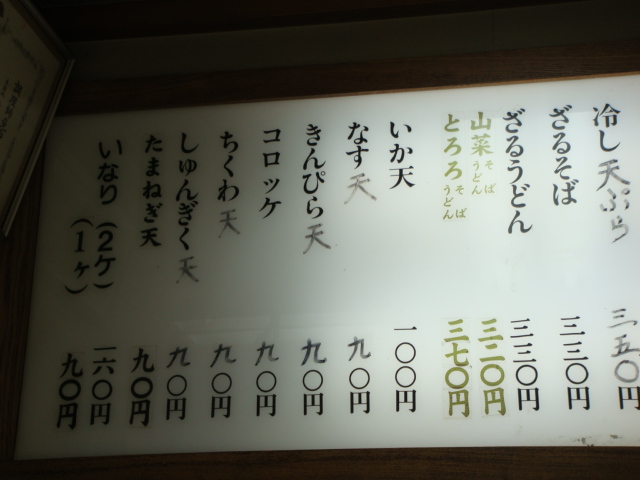 冷し天ぷら 三五〇円
ざるそば 三三〇円
ざるうどん 三三〇円
山菜そばうどん 三二〇円
とろろそばうどん 三七〇円
いか天 一〇〇円
なす天 九〇円
きんぴら天 九〇円
コロッケ 九〇円
ちくわ天 九〇円
しゅんぎく天 九〇円
たまねぎ天 九〇円
いなり(2ケ) 一六〇円
(1ケ) 九〇円